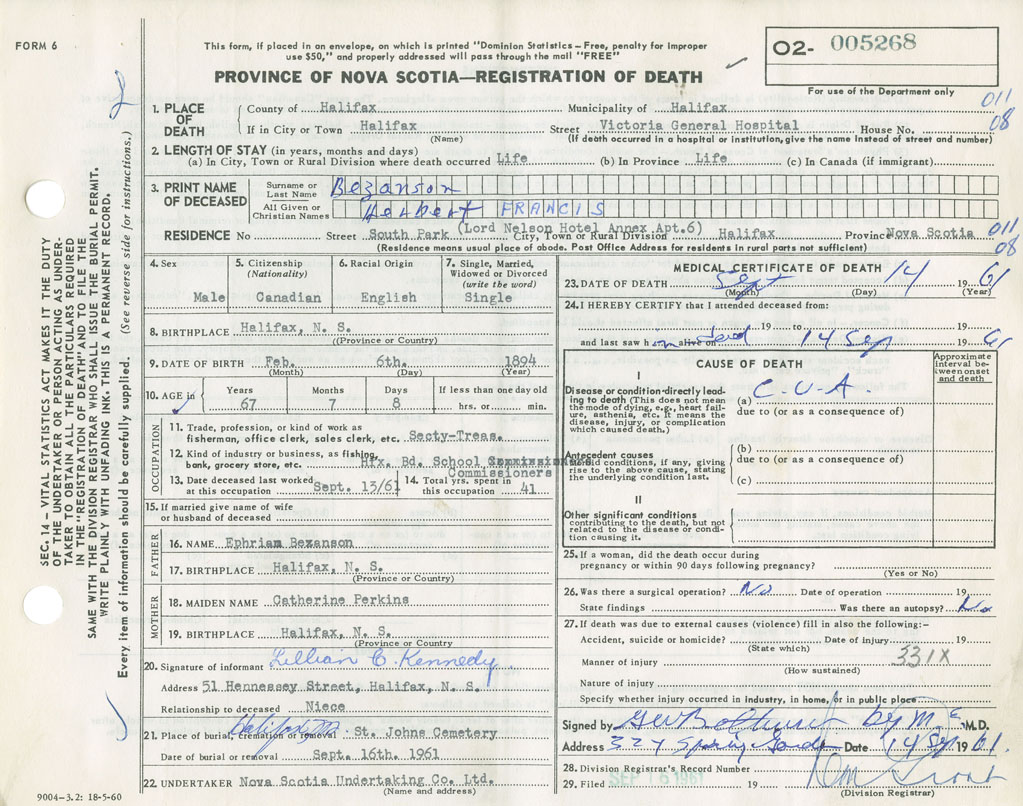 FORM 6
This form, if placed in an envelope, on which is printed "Dominion Statistics – Free, penalty for improper
use $50," and properly addressed will pass through the mail "FREE"
PROVINCE OF NOVA SCOTIA—REGISTRATION OF DEATH
O2- 005268
For use of the Department only
1. PLACE OF DEATH
County of Halifax Municipality of Halifax 011
If in City or Town Halifax Street Victoria General Hospital House No. 08
(Name) (If death occurred in a hospital or institution, give the name instead of street and number)
2. LENGTH OF STAY (in years, months and days)
(a) In City, Town or Rural Division where death occurred Life (b) In Province Life (c) In Canada (if immigrant)
3. PRINT NAME OF DECEASED
Surname or Last Name Bezanson
All Given or Christian Names Herbert FRANCIS
(Lord Nelson Hotel Annex Apt.6)
RESIDENCE No Street South Park City, Town or Rural Division Halifax Province Nova Scotia 011
08
(Residence means usual place of abode. Post Office Address for residents in rural parts not sufficient)
4. Sex
Male
5. Citizenship (Nationality)
Canadian
6. Racial Origin
English
7. Single, Married, Widowed or Divorced (write the word)
Single
8. BIRTHPLACE Halifax, N. S.
(Province or Country)
9. DATE OF BIRTH Feb. 6th. 1894
(Month) (Day) (Year)
10. AGE in Years Months Days If less than one day old
67 7 8 hrs. or min.
OCCUPATION
11. Trade, profession, or kind of work as
fisherman, office clerk, sales clerk, etc. Secty-Treas.
12. Kind of industry or business, as fishing,
bank, grocery store, etc. Hfx. Bd. School Commissioners
Commissioners
13. Date deceased last worked at this occupation Sept. 13/61
14. Total yrs. spent in this occupation 41
15. If married give name of wife
or husband of deceased
FATHER
16. NAME Ephriam Bezanson
17. BIRTHPLACE Halifax, N. S.
(Province or Country)
MOTHER
18. MAIDEN NAME Catherine Perkins
19. BIRTHPLACE Halifax, N. S.
(Province or Country)
20. Signature of informant Lillian C. Kennedy
Address 51 Hennessey Street, Halifax, N. S.
Relationship to deceased Niece
21. Place of burial, cremation or removal Halifax St. Johns Cemetery
Date of burial or removal Sept. 16th. 1961
22. UNDERTAKER Nova Scotia Undertaking Co. Ltd.
(Name and address)
9004-3.2: 18-5-60
MEDICAL CERTIFICATE OF DEATH
23. DATE OF DEATH Sept 14 1961
(Month) (Day) (Year)
24. I HEREBY CERTIFY that I attended deceased from:
19 to 19
and last saw h im alive on dead 14 Sep 1961
CAUSE OF DEATH
Approximate interval between onset and death
I
Disease or condition directly leading to death (This does not mean the mode of dying, e.g., heart failure, asthenia, etc. It means the disease, injury, or complication which caused death.)
(a) C.V.A.
due to (or as a consequence of)
Antecedent causes
Morbid conditions, if any, giving rise to the above cause, stating the underlying condition last.
(b)
due to (or as a consequence of)
(c)
II
Other significant conditions
contributing to the death, but not related to the disease or condition causing it.
25. If a woman, did the death occur during
pregnancy or within 90 days following pregnancy?
(Yes or No)
26. Was there a surgical operation? No Date of operation 19
State findings Was there an autopsy? No
27. If death was due to external causes (violence) fill in also the following:-
Accident, suicide or homicide? Date of injury 19
(State which)
331X
Manner of injury
(How sustained)
Nature of injury
Specify whether injury occurred in industry, in home, or in public place
Signed by M.D.
Address 324 Spring Date 14 Sep 1961.
28. Division Registrar's Record Number
29. Filed SEP 16 1961 19
(Division Registrar)
SEC. 14 – VITAL STATISTICS ACT MAKES IT THE DUTY
OF THE UNDERTAKER OR PERSON ACTING AS UNDER-
TAKER TO OBTAIN ALL THE PARTICULARS REQUIRED
IN THE "REGISTRATION OF DEATH" AND TO FILE THE
SAME WITH THE DIVISION REGISTRAR WHO SHALL ISSUE THE BURIAL PERMIT.
WRITE PLAINLY WITH UNFADING INK. THIS IS A PERMANENT RECORD.
Every item of information should be carefully supplied. (See reverse side for instructions.)